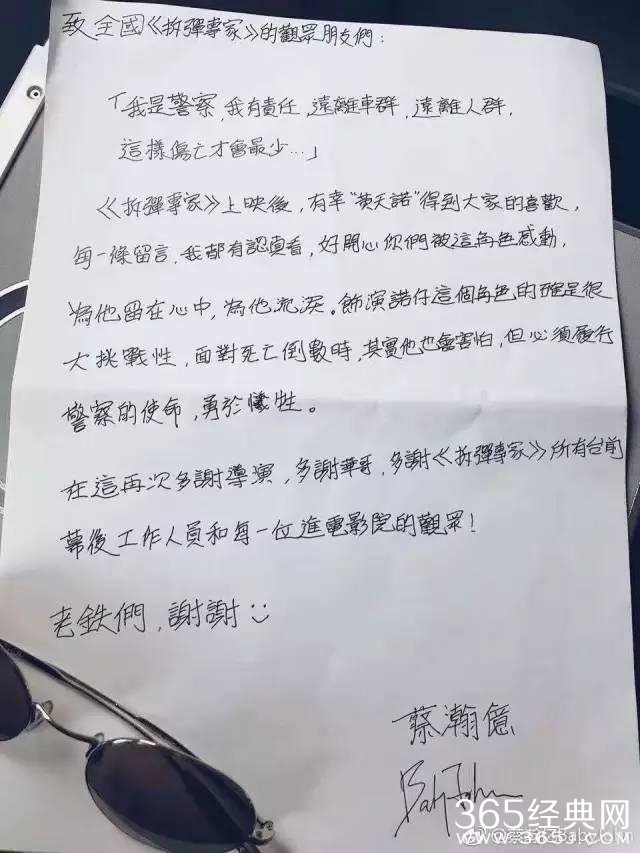 致 全國《拆彈專家》的觀眾朋友們：
「我是警察，我有責任，遠離車群，遠離人群，
這樣傷亡才會最少…」
《拆彈專家》上映後，有幸“黃天諾”得到大家的喜歡，
每一條留言，我都有認真看，好開心你們被這角色感動，
為他留在心中，為他流淚。飾演諾仔這個角色的確是很
大挑戰性，面對死亡倒數時，其實他也會害怕，但必須履行
警察的使命，勇於犧牲。
在這再次多謝導演，多謝華哥，多謝《拆彈專家》所有台前
幕後工作人員和每一位進電影院的觀眾！
老鉄們，謝謝
蔡瀚億
Baby John
365经典网
www.365jd.com